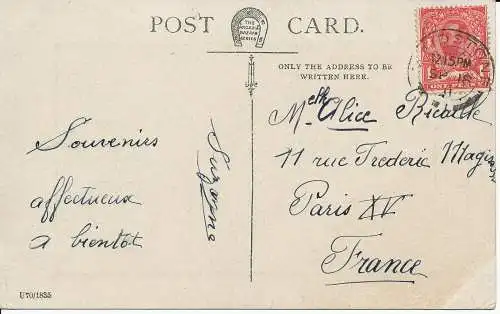 POST CARD.
THE ARCADIA BAZAAR SERIES
ONLY THE ADDRESS TO BE
WRITTEN HERE.
12.15 PM
SP 18
11
ONE
Souvenirs
affectueux
a bientot
Suzanne
Melle Alice Ricaille
11 rue Frederic Magisson
Paris XV
France
U70/1835